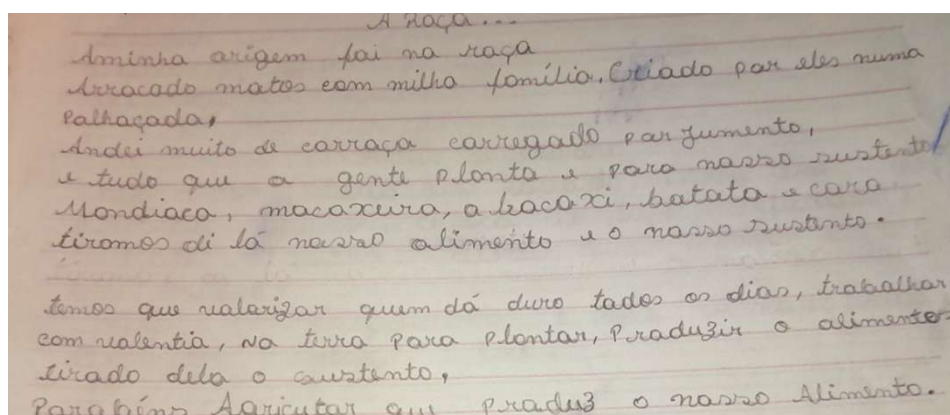 A Roça...
Aminha origem foi na roça
Arracado matos com milha família. Criado por eles numa
Palhaçada,
Andei muito de carroça carregado por jumento,
e tudo que a gente planta e para nosso sustento
Mondiaca, macaxeira, abacaxi, batata e cara
tiramos di lá nosso alimento e o nosso sustento.
temos que valorizar quem dá duro todos os dias, trabalhar
com valentia, na terra para plantar, Produzir o alimento
tirado dela o sustento,
Parabéns Agricutor que produz o nosso Alimento.